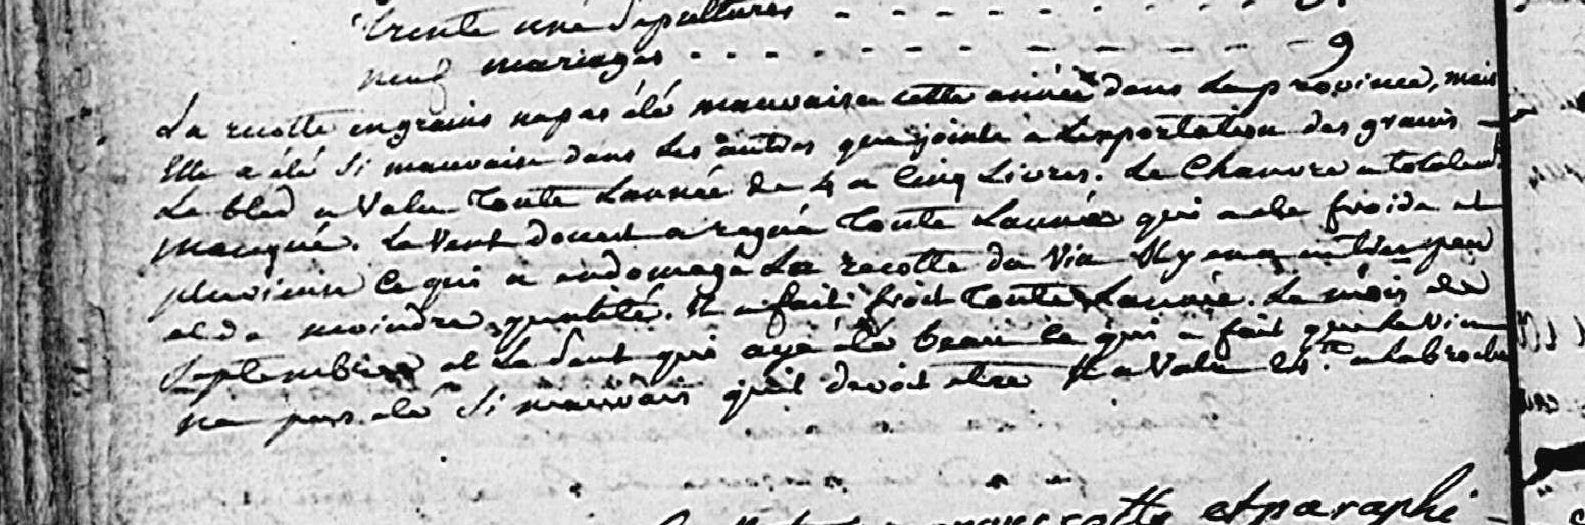 trente une sepultures - - - - - - - -
neuf mariages - - - - - - - - - 9
La recolte en grains na pas été mauvaise cette année dans la province, mais
Elle a été si mauvaise dans les autres que jointe a Lexportation des grains -
Le bled a valu toute Lannée de 4 a Cinq Livres. Le Chanvre a totalemt
manqué. Le vent douest a regné toute Lannée qui a ete froide et
pluvieuse ce qui a endomagé La recolte du vin Il y en a eu bien peu
et de moindre qualité. Il a fait froid toute Lannée. Le mois de
Septembre et Le Seul qui aye été beau ce qui a fait que le vin
na pas été Si mauvais quil devoit etre Il a valu 24.tt a la broche
cotté et paraphé